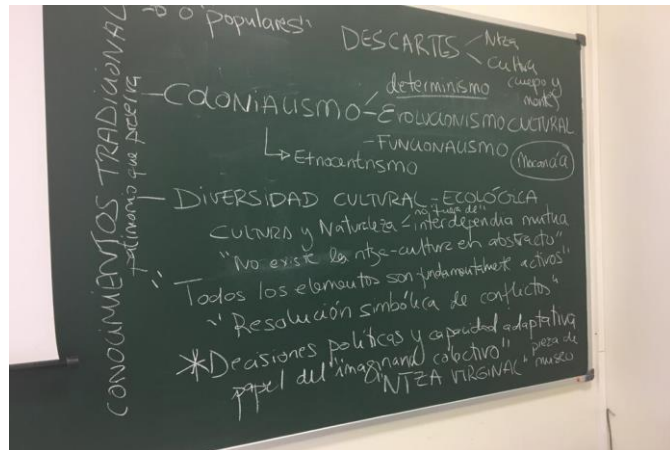 CONOCIMIENTOS TRADICIONAL
"patrimonio que preserva
→ o "populares"
DESCARTES < Ntza
cultura
cuerpo y
mente
- COLONIALISMO - determinismo
- EVOLUCIONISMO CULTURAL
- FUNCIONALISMO
↳ Etnocentrismo
- DIVERSIDAD CULTURAL - ECOLÓGICA
CULTURA y Naturaleza - interdependia mutua
"No existe la ntza-cultura en abstracto"
Todos los elementos son fundamentalmente activos"
"Resolución simbólica de conflictos"
*Decisiones políticas y capacidad adaptativa
papel del "imaginario colectivo"
"NTZA VIRGINAL" pieza de
museo